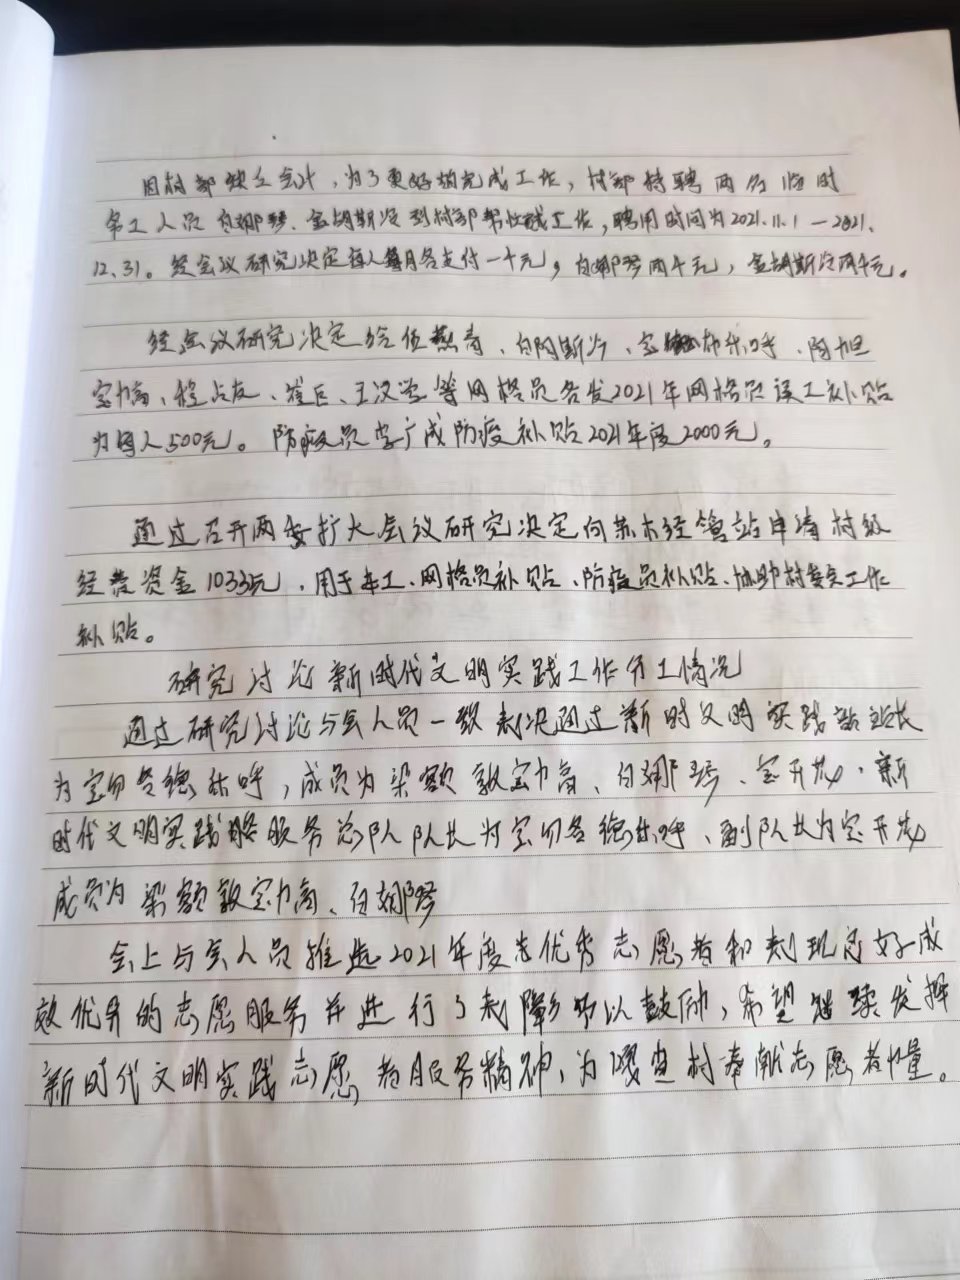 因村部缺会计，为了更好的完成工作，村部特聘两名临时
务工人员白娜琴、金胡斯冷到村部帮忙工作，聘用时间为2021.11.1—2021.
12.31。经会议研究决定每人每月各支付一千元，白娜琴两千元，金胡斯冷两千元。
经会议研究决定给伍燕青、白阿斯冷、布乐呼、陶旭
宝力高、程占友、崔巨、王汉学等网格员各发2021年网格员误工补贴
为每人500元。防疫员李广成防疫补贴2021年度2000元。
通过召开两委扩大会议研究决定向苏木经管站申请村级
经费资金1033元，用于务工、网格员补贴、防疫员补贴、协助村委会工作
补贴。
研究讨论新时代文明实践工作分工情况
通过研究讨论与会人员一致表决通过新时文明实践站站长
为，成员为梁额敦宝力高、白娜琴、宝开花，新
时代文明实践服务总队队长为、副队长为宝开花
成员为梁额敦宝力高、白娜琴
会上与会人员推选2021年度志优秀志愿者和表现良好成
效优异的志愿服务并进行了表彰予以鼓励，希望继续发挥
新时代文明实践志愿者服务精神，为嘎查村奉献志愿者力量。